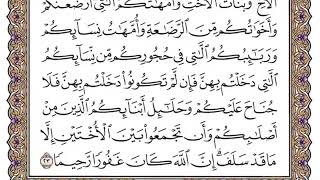 ٱلْأَخِ وَبَنَاتُ ٱلْأُخْتِ وَأُمَّهَٰتُكُمُ ٱلَّٰتِىٓ أَرْضَعْنَكُمْ
وَأَخَوَٰتُكُم مِّنَ ٱلرَّضَٰعَةِ وَأُمَّهَٰتُ نِسَآئِكُمْ
وَرَبَٰٓئِبُكُمُ ٱلَّٰتِى فِى حُجُورِكُم مِّن نِّسَآئِكُمُ
ٱلَّٰتِى دَخَلْتُم بِهِنَّ فَإِن لَّمْ تَكُونُوا۟ دَخَلْتُم بِهِنَّ فَلَا
جُنَاحَ عَلَيْكُمْ وَحَلَٰٓئِلُ أَبْنَآئِكُمُ ٱلَّذِينَ مِنْ
أَصْلَٰبِكُمْ وَأَن تَجْمَعُوا۟ بَيْنَ ٱلْأُخْتَيْنِ إِلَّا
مَا قَدْ سَلَفَ إِنَّ ٱللَّهَ كَانَ غَفُورًا رَّحِيمًا ٢٣